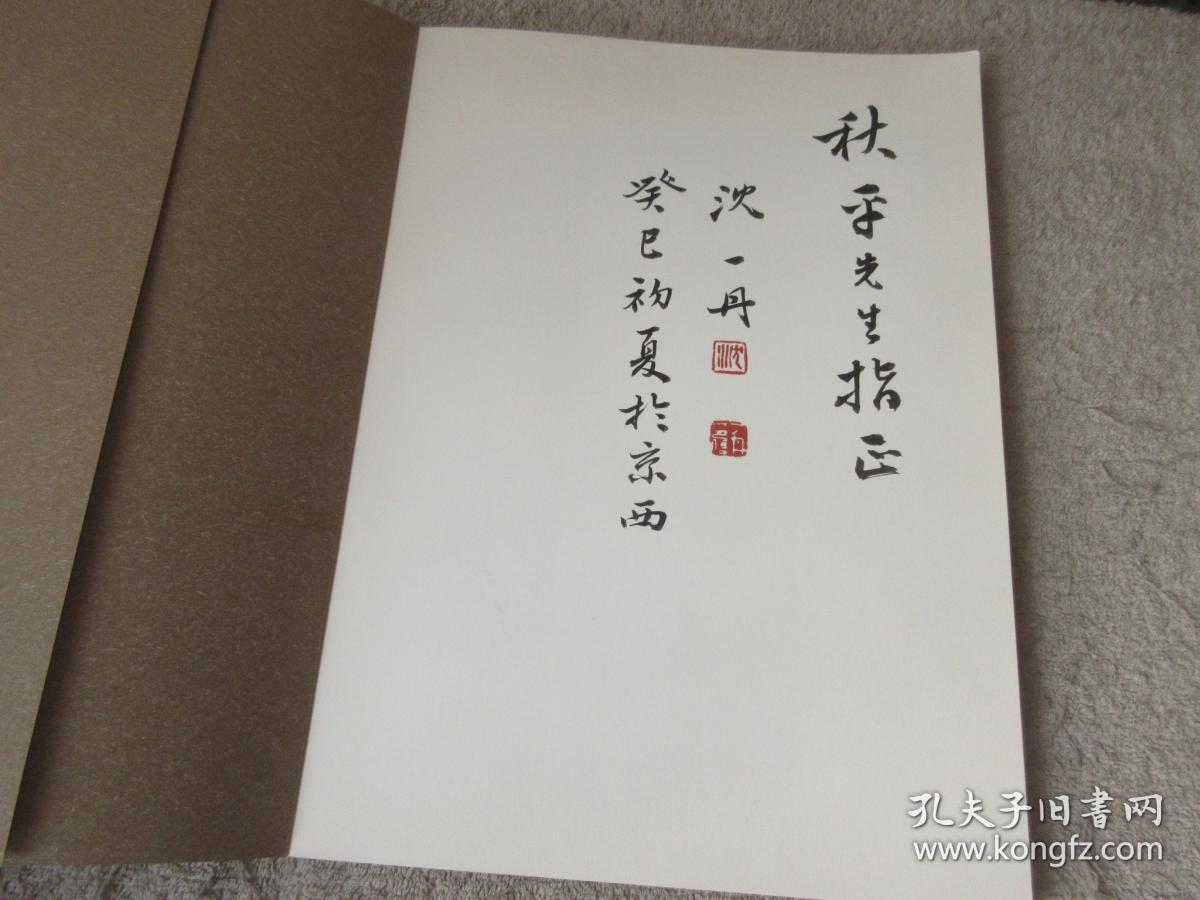 秋平先生指正
沈一丹
沈
癸巳初夏於京西
孔夫子旧书网
www.kongfz.com